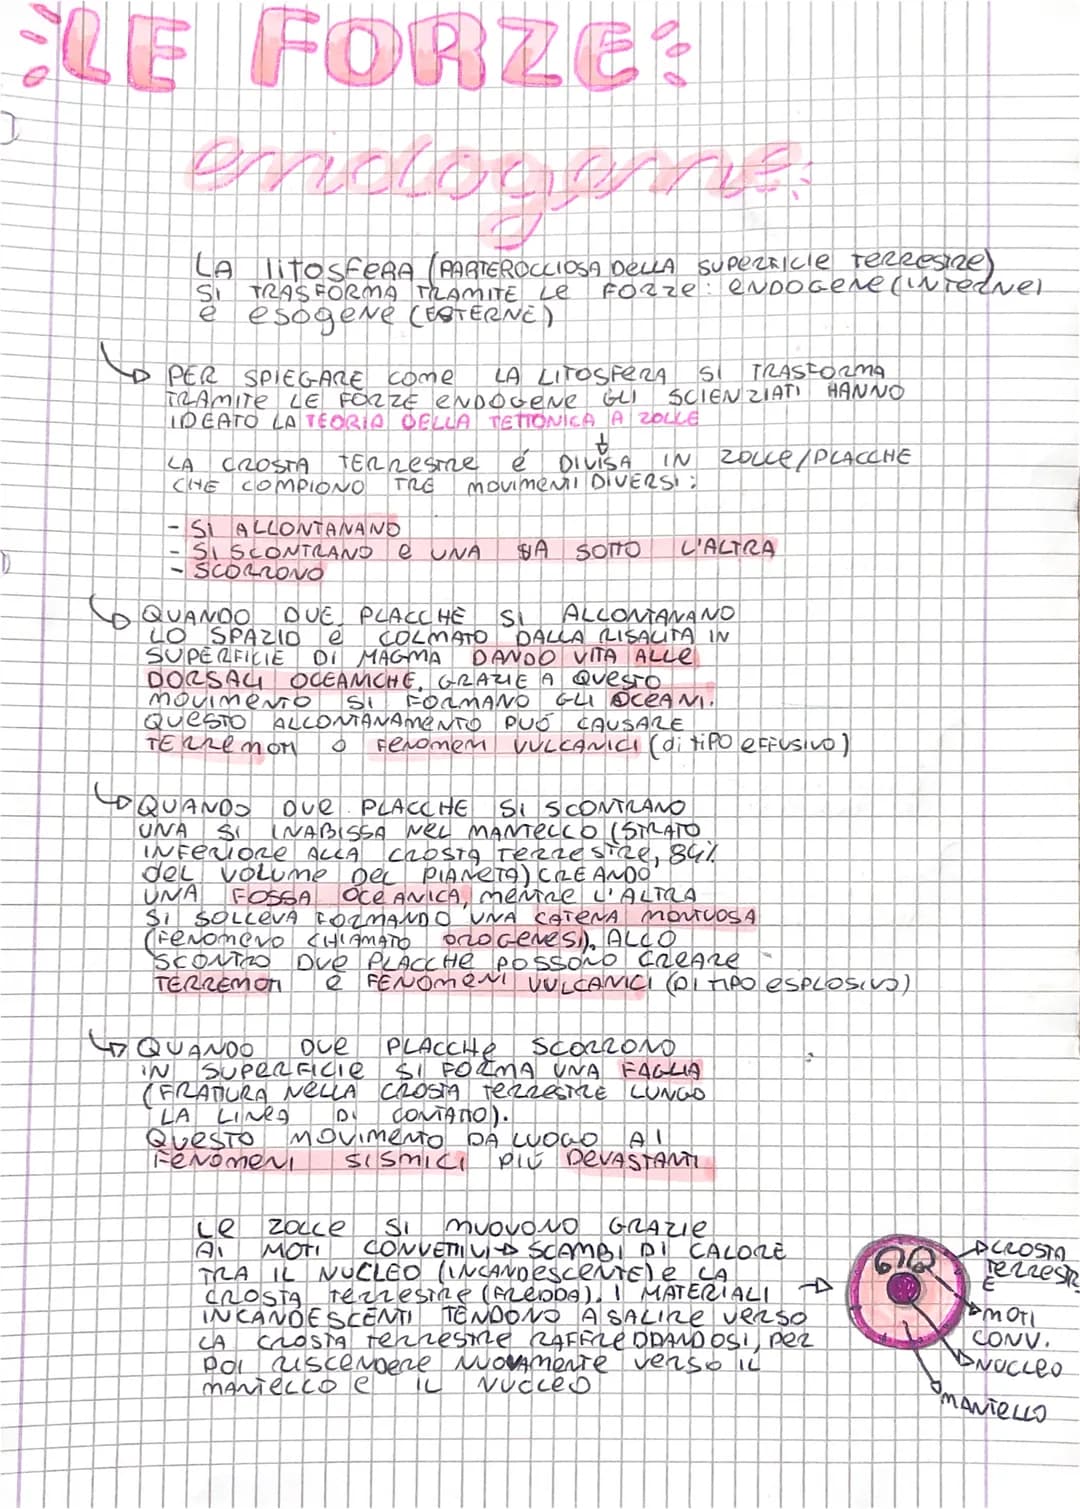 LE FORZE
endogene
LA LITOSFERA (PARTEROCCIOSA DELLA SUPERFICIE TERRESTRE)
SI TRASFORMA TRAMITE LE FORZE: ENDOGENE (INTERNE)
E ESOGENE (ESTERNE)
PER SPIEGARE COME LA LITOSFERA SI TRASFORMA
TRAMITE LE FORZE ENDOGENE GLI SCIENZIATI HANNO
IDEATO LA TEORIA DELLA TETTONICA A ZOLLE
LA CROSTA TERRESTRE É DIVISA IN ZOLLE/PLACCHE
CHE COMPIONO TRE MOVIMENTI DIVERSI:
- SI ALLONTANANO
- SI SCONTRANO E UNA VA SOTTO L'ALTRA
- SCORRONO
QUANDO DUE PLACCHE SI ALLONTANANO
LO SPAZIO É COLMATO DALLA RISALITA IN
SUPERFICIE DI MAGMA DANDO VITA ALLE
DORSALI OCEANICHE. GRAZIE A QUESTO
MOVIMENTO SI FORMANO GLI OCEANI.
QUESTO ALLONTANAMENTO PUÓ CAUSARE
TERREMOTI O FENOMENI VULCANICI (di TIPO EFFUSIVO)
QUANDO DUE PLACCHE SI SCONTRANO
UNA SI INABISSA NEL MANTELLO (STRATO
INFERIORE ALLA CROSTA TERRESTRE, 84%
DEL VOLUME DEL PIANETA) CREANDO
UNA FOSSA OCEANICA, MENTRE L'ALTRA
SI SOLLEVA FORMANDO UNA CATENA MONTUOSA
(FENOMENO CHIAMATO OROGENESI). ALLO
SCONTRO DUE PLACCHE POSSONO CREARE
TERREMOTI E FENOMENI VULCANICI (DI TIPO ESPLOSIVO)
QUANDO DUE PLACCHE SCORRONO
IN SUPERFICIE SI FORMA UNA FAGLIA
(FRATTURA NELLA CROSTA TERRESTRE LUNGO
LA LINEA DI CONTATTO).
QUESTO MOVIMENTO DA LUOGO AI
FENOMENI SISMICI PIÚ DEVASTANTI
LE ZOLLE SI MUOVONO GRAZIE
AI MOTI CONVETTIVI → SCAMBI DI CALORE
TRA IL NUCLEO (INCANDESCENTE) E LA
CROSTA TERRESTRE (FREDDA). I MATERIALI
INCANDESCENTI TENDONO A SALIRE VERSO
LA CROSTA TERRESTRE RAFFREDDANDOSI, PER
POI RISCENDERE NUOVAMENTE VERSO IL
MANTELLO E IL NUCLEO
CROSTA
TERRESTR
E
MOTI
CONV.
NUCLEO
MANTELLO